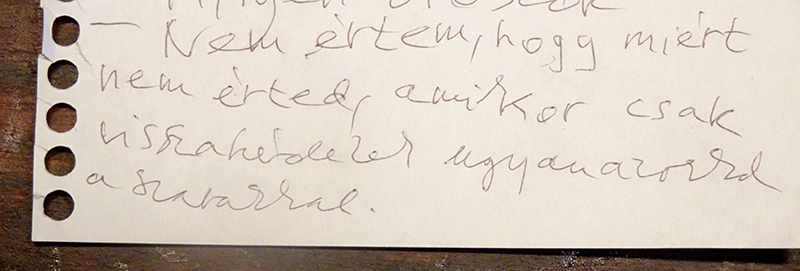 — Nem értem, hogy miért
nem érted, amikor csak
visszakérdezel ugyanazokkal
a szavakkal.